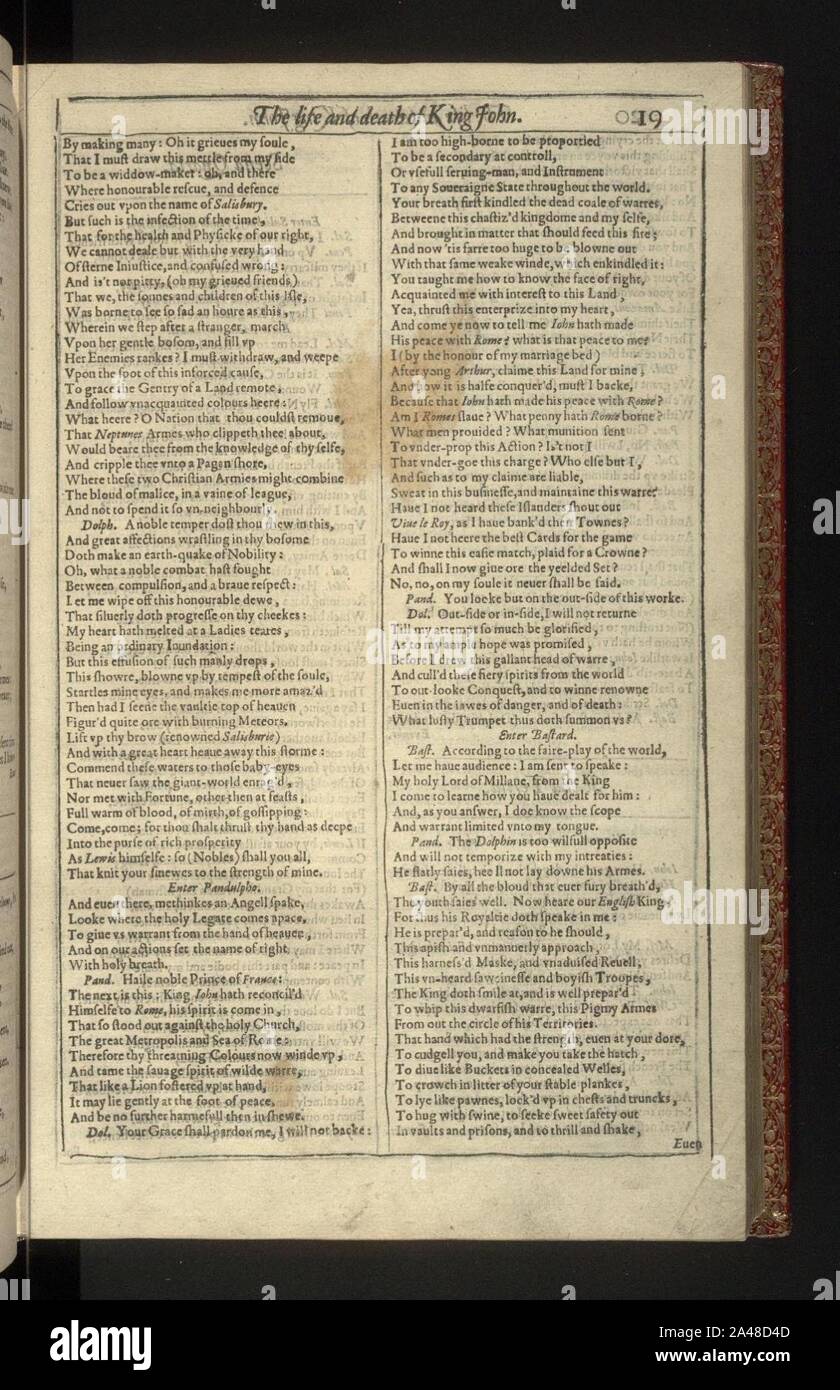 The life and death of King John.
19
By making many: Oh it grieues my soule,
That I muſt draw this mettle from my ſide
To be a widdow-maker: oh, and there
Where honourable reſcue, and defence
Cries out vpon the name of Salisbury.
But ſuch is the infection of the time,
That for the health and Phyſicke of our right,
We cannot deale but with the very hand
Of ſterne Iniuſtice, and confuſed wrong:
And is't not pitty, (oh my grieued friends)
That we, the ſonnes and children of this Iſle,
Was borne to ſee ſo ſad an houre as this,
Wherein we ſtep after a ſtranger, march
Vpon her gentle boſom, and fill vp
Her Enemies rankes? I muſt withdraw, and weepe
Vpon the ſpot of this inforced cauſe,
To grace the Gentry of a Land remote,
And follow vnacquainted colours heere:
What heere? O Nation that thou couldſt remoue,
That Neptunes Armes who clippeth thee about,
Would beare thee from the knowledge of thy ſelfe,
And cripple thee vnto a Pagan ſhore,
Where theſe two Chriſtian Armies might combine
The bloud of malice, in a vaine of league,
And not to ſpend it ſo vn-neighbourly.
Dolph. A noble temper doſt thou ſhew in this,
And great affections wraſtling in thy boſome
Doth make an earth-quake of Nobility:
Oh, what a noble combat haſt fought
Between compulſion, and a braue reſpect:
Let me wipe off this honourable dewe,
That ſiluerly doth progreſſe on thy cheekes:
My heart hath melted at a Ladies teares,
Being an ordinary Inundation:
But this effuſion of ſuch manly drops,
This ſhowre, blowne vp by tempeſt of the ſoule,
Startles mine eyes, and makes me more amaz'd
Then had I ſeene the vaultie top of heauen
Figur'd quite ore with burning Meteors.
Lift vp thy brow (renowned Salisburie)
And with a great heart heaue away this ſtorme:
Commend theſe waters to thoſe baby-eyes
That neuer ſaw the giant-world enrag'd,
Nor met with Fortune, other then at feaſts,
Full warm of blood, of mirth, of goſſipping:
Come, come; for thou ſhalt thruſt thy hand as deepe
Into the purſe of rich proſperity
As Lewis himſelfe: ſo (Nobles) ſhall you all,
That knit your ſinewes to the ſtrength of mine.
Enter Pandulpho.
And euen there, methinkes an Angell ſpake,
Looke where the holy Legate comes apace,
To giue vs warrant from the hand of heauen,
And on our actions ſet the name of right
With holy breath.
Pand. Haile noble Prince of France:
The next is this: King Iohn hath reconcil'd
Himſelfe to Rome, his ſpirit is come in,
That ſo ſtood out againſt the holy Church,
The great Metropolis and Sea of Rome:
Therefore thy threatning Colours now winde vp,
And tame the ſauage ſpirit of wilde warre,
That like a Lion foſtered vp at hand,
It may lie gently at the foot of peace,
And be no further harmefull then in ſhewe.
Dol. Your Grace ſhall pardon me, I will not backe:
I am too high-borne to be proportied
To be a ſecondary at controll,
Or vſefull ſeruing-man, and Inſtrument
To any Soueraigne State throughout the world.
Your breath firſt kindled the dead coale of warres,
Betweene this chaſtiz'd kingdome and my ſelfe,
And brought in matter that ſhould feed this fire;
And now 'tis farre too huge to be blowne out
With that ſame weake winde, which enkindled it:
You taught me how to know the face of right,
Acquainted me with intereſt to this Land,
Yea, thruſt this enterprize into my heart,
And come ye now to tell me Iohn hath made
His peace with Rome? what is that peace to me?
I (by the honour of my marriage bed)
After yong Arthur, claime this Land for mine,
And now it is halfe conquer'd, muſt I backe,
Becauſe that Iohn hath made his peace with Rome?
Am I Romes ſlaue? What penny hath Rome borne?
What men prouided? What munition ſent
To vnder-prop this Action? Is't not I
That vnder-goe this charge? Who elſe but I,
And ſuch as to my claime are liable,
Sweat in this buſineſſe, and maintaine this warre?
Haue I not heard theſe Iſlanders ſhout out
Viue le Roy, as I haue bank'd their Townes?
Haue I not heere the beſt Cards for the game
To winne this eaſie match, plaid for a Crowne?
And ſhall I now giue ore the yeelded Set?
No, no, on my ſoule it neuer ſhall be ſaid.
Pand. You looke but on the out-ſide of this worke.
Dol. Out-ſide or in-ſide, I will not returne
Till my attempt ſo much be glorified,
As to my ample hope was promiſed,
Before I drew this gallant head of warre,
And cull'd theſe fiery ſpirits from the world
To out-looke Conqueſt, and to winne renowne
Euen in the iawes of danger, and of death:
What luſty Trumpet thus doth ſummon vs?
Enter Baſtard.
Baſt. According to the faire-play of the world,
Let me haue audience: I am ſent to ſpeake:
My holy Lord of Millane, from the King
I come to learne how you haue dealt for him:
And, as you anſwer, I doe know the ſcope
And warrant limited vnto my tongue.
Pand. The Dolphin is too wilfull oppoſite
And will not temporize with my intreaties:
He flatly ſaies, hee'll not lay downe his Armes.
Baſt. By all the bloud that euer fury breath'd,
The youth ſaies well. Now heare our Engliſh King,
For thus his Royaltie doth ſpeake in me:
He is prepar'd, and reaſon to he ſhould,
This apiſh and vnmannerly approach,
This harneſs'd Maske, and vnaduiſed Reuell,
This vn-heard ſawcineſſe and boyiſh Troopes,
The King doth ſmile at, and is well prepar'd
To whip this dwarfiſh warre, this Pigmy Armes
From out the circle of his Territories.
That hand which had the ſtrength, euen at your dore,
To cudgell you, and make you take the hatch,
To diue like Buckets in concealed Welles,
To crowch in litter of your ſtable plankes,
To lye like pawnes, lock'd vp in cheſts and truncks,
To hug with ſwine, to ſeeke ſweet ſafety out
In vaults and priſons, and to thrill and ſhake,
Euen
alamy
Image ID: 2A48D4D
www.alamy.com